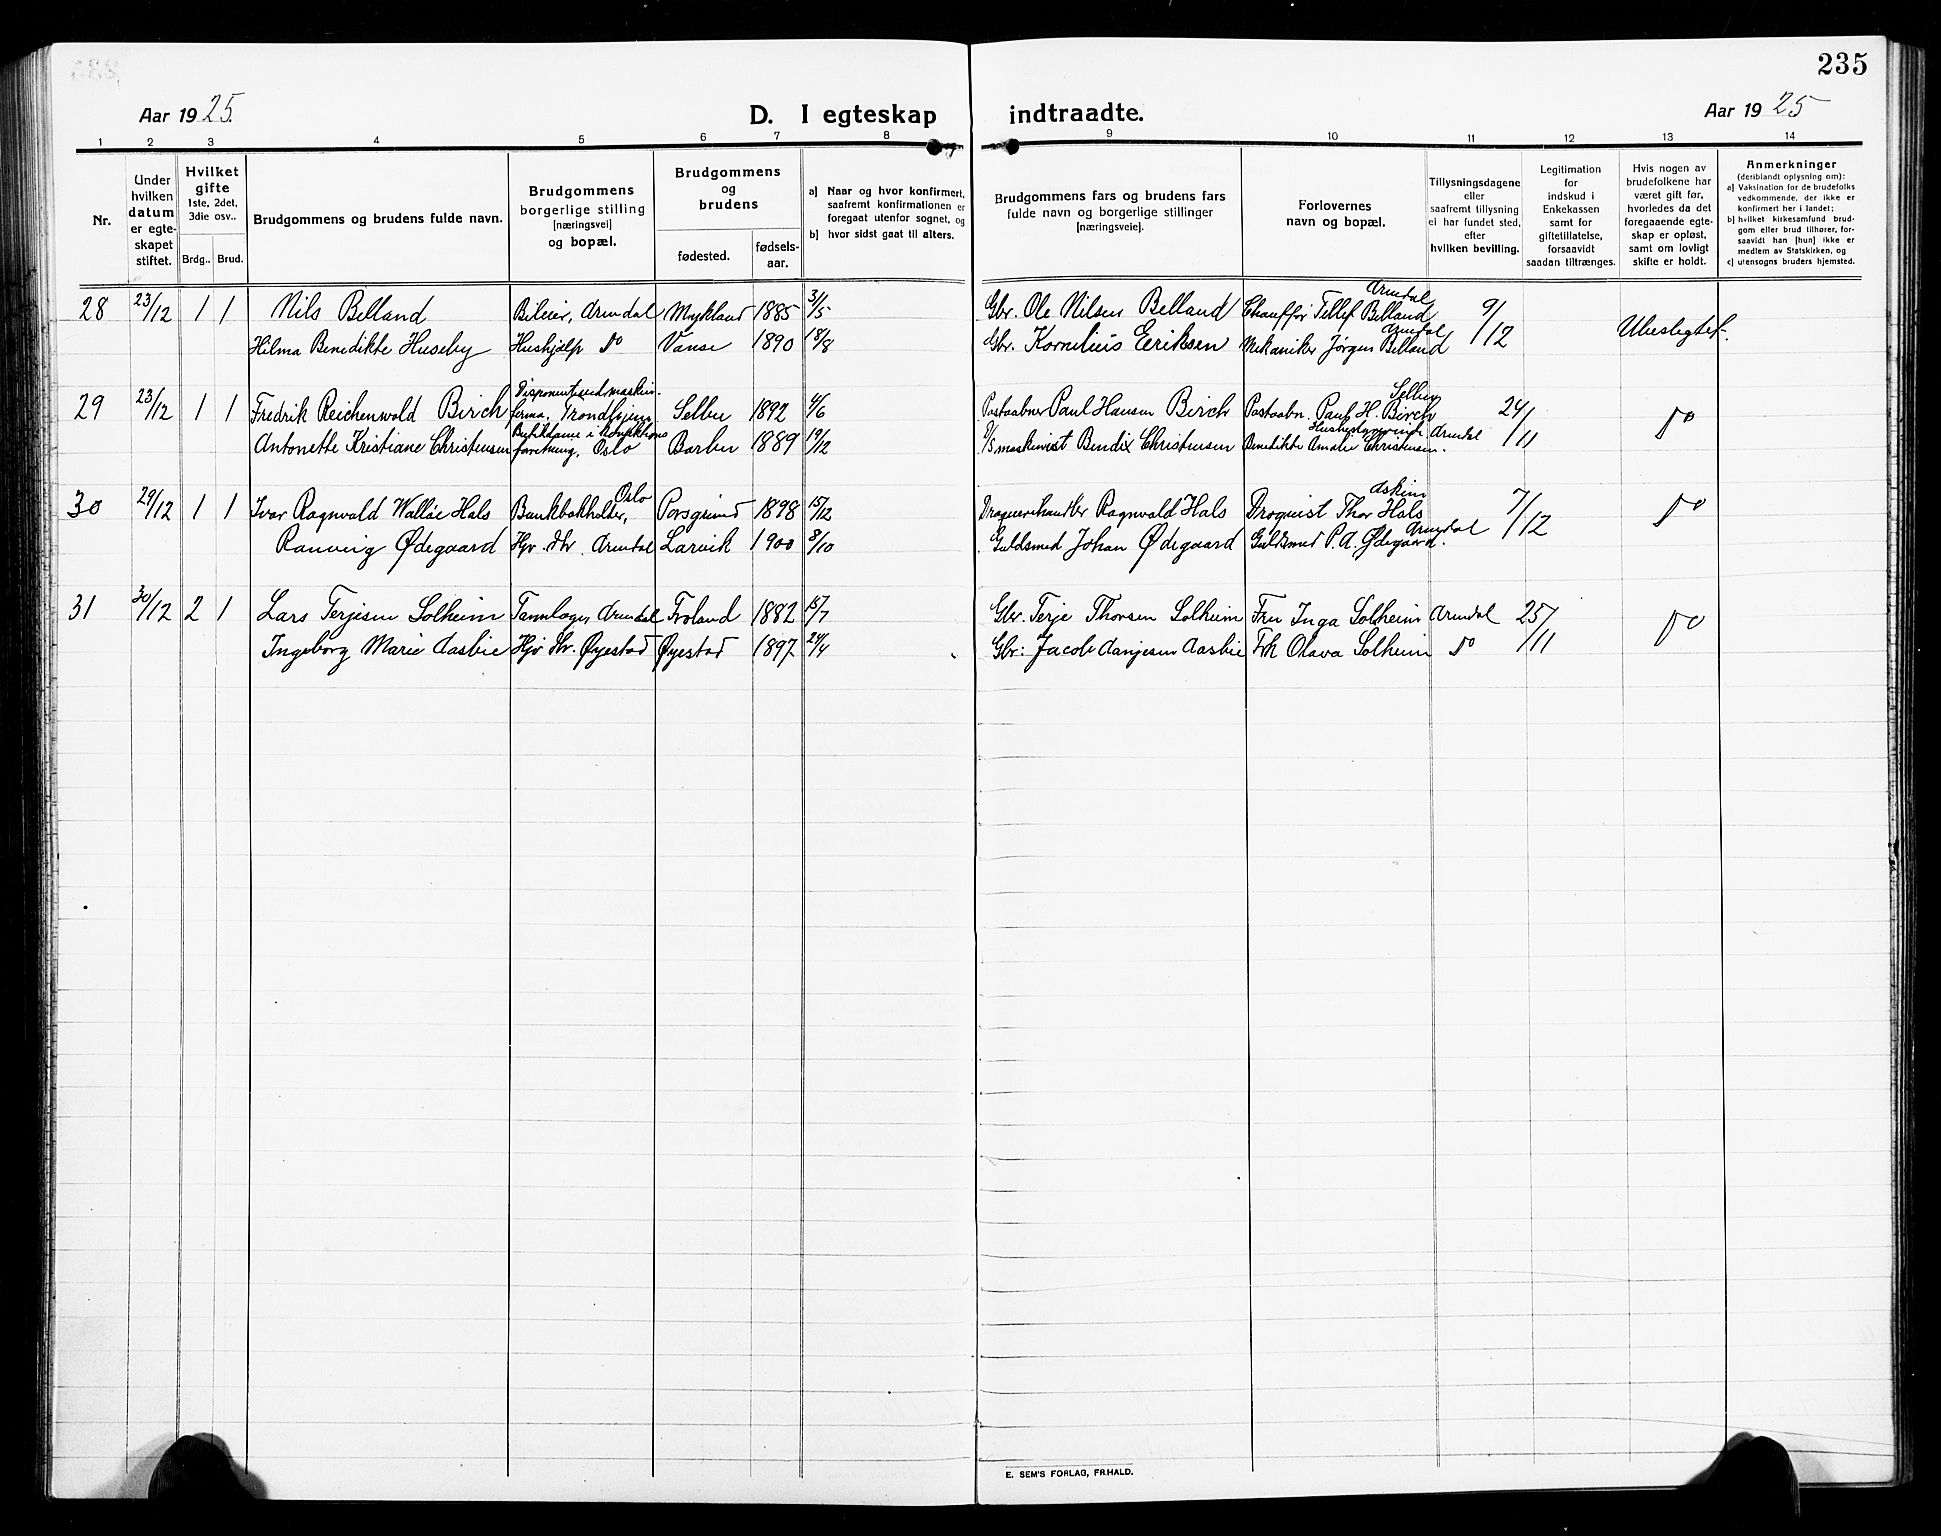 235
Aar 1925.
D. I egteskap
indtraadte.
Aar 1925
1 2 3 4 5 6 7 8 9 10 11 12 13 14
Nr.
Under hvilken datum er egteskapet stiftet.
Hvilket gifte
1ste, 2det, 3die osv..
Brdg.. Brud.
Brudgommens og brudens fulde navn.
Brudgommens borgerlige stilling [næringsvei] og bopæl.
Brudgommens og brudens
fødested.
fødsels-aar.
a) Naar og hvor konfirmert, saafremt konfirmationen er foregaat utenfor sognet, og
b) hvor sidst gaat til alters.
Brudgommens fars og brudens fars fulde navn og borgerlige stillinger [næringsveie].
Forlovernes navn og bopæl.
Tillysningsdagene eller saafremt tillysning ei har fundet sted, efter hvilken bevilling.
Legitimation for indskud i Enkekassen samt for giftetillatelse, forsaavidt saadan tiltrænges.
Hvis nogen av brudefolkene har været gift før, hvorledes da det foregaaende egteskap er opløst, samt om lovligt skifte er holdt.
Anmerkninger
(deriblandt oplysning om):
a) Vaksination for de brudefolks vedkommende, der ikke er konfirmert her i landet;
b) hvilket kirkesamfund brudgom eller brud tilhører, forsaavidt han [hun] ikke er medlem av Statskirken, og
c) utensogns bruders hjemsted.
28 23/12 1 1 Nils Belland Bileier, Arendal Mykland 1885 3/5 Gbr. Ole Nilsen Belland Chauffør Tellef Belland Arendal 9/12 Ubeslegtet.
Hilma Benedikte Huseby Hushjælp do Vanse 1890 18/8 Gbr. Kornelius Eeriksen Mekaniker Jørgen Belland Arendal
29 23/12 1 1 Fredrik Reichenwald Birch Disponent ved maskinfirma, Trondhjem Selbu 1892 4/6 Postaabner Paul Hansen Birch Postaabn. Paul H. Birch Selbu 24/11 do
Antonette Kristiane Christensen Oslo Barbu 1889 19/12 maskinist Bendix Christensen Benedikte Amalie Christensen. Arendal
30 29/12 1 1 Ivar Ragnvald Walløe Hals Bankbokholder, Oslo Porsgrund 1898 15/12 Ragnvald Hals Droquist Thor Hals Askim 7/12 do
Ranveig Ødegaard Hjv. Hr. Arendal Larvik 1900 8/10 Guldsmed Johan Ødegaard Guldsmed P. A. Ødegaard. Arendal
31 30/12 2 1 Lars Terjesen Solheim Arendal Froland 1882 15/7 Gbr. Terje Thorsen Solheim Fru Inga Solheim Arendal 25/11 do
Ingeborg Marie Aasbie Hjv Hr. Øyestad Øyestad 1897 24/4 Gbr: Jacob Aanjesen Aasbie Frk Olava Solheim do
E. SEM'S FORLAG, FR.HALD.